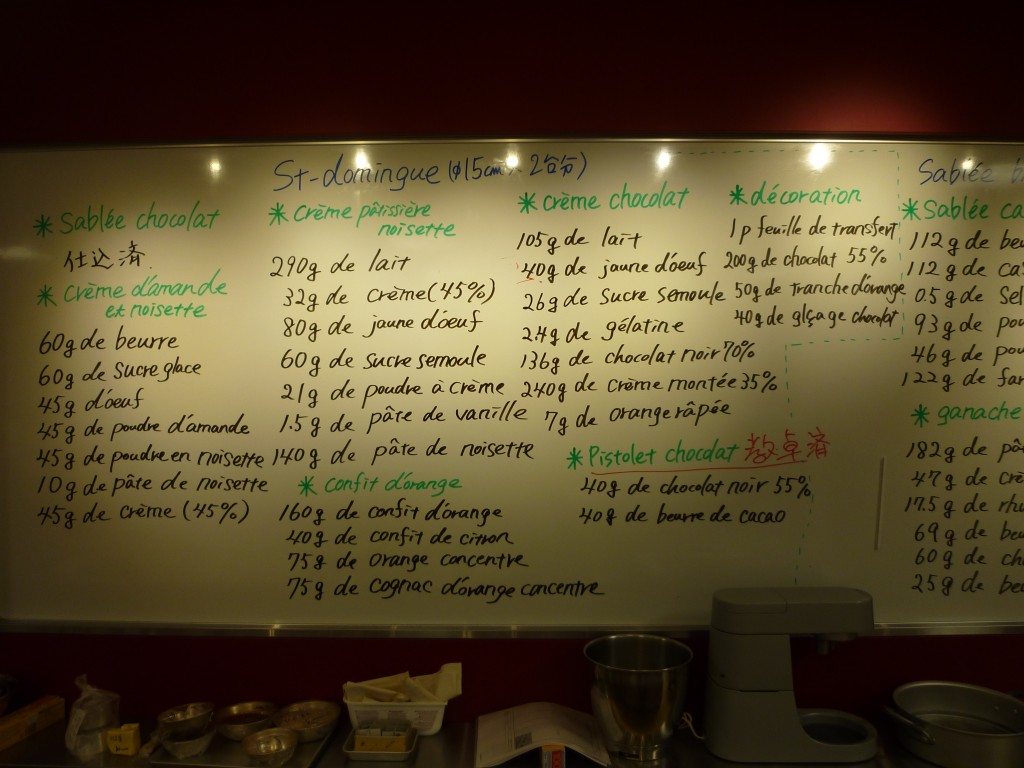 St-domingue (φ15cm, 2台分)
* Sablée chocolat
仕込済.
* Crème d'amande
et noisette
60g de beurre
60g de sucre glace
45g d'oeuf
45g de poudre d'amande
45g de poudre en noisette
10g de pâte de noisette
45g de crème (45%)
* Crème pâtissière
noisette
290g de lait
32g de crème (45%)
80g de jaune d'oeuf
60g de sucre semoule
21g de poudre à crème
1.5g de pâte de vanille
140g de pâte de noisette
* confit d'orange
160g de confit d'orange
40g de confit de citron
75g de orange concentre
75g de cognac d'orange concentre
* crème chocolat
105g de lait
40g de jaune d'oeuf
26g de sucre semoule
2.4g de gélatine
136g de chocolat noir 70%
240g de crème montée 35%
7g de orange râpée
* Pistolet chocdat 教卓済
40g de chocolat noir 55%
40g de beurre de cacao
* décoration
1p feuille de transfert
200g de chocolat 55%
50g de tranche d'orange
40g de glçage chocolat
Sablée b
* Sablée ca
112g de beu
112g de ca
0.5g de sel
93g de pou
46g de pou
122g de far
* ganache
182g de pâ
47g de crè
17.5g de rhu
69g de beu
60g de ch
25g de beu